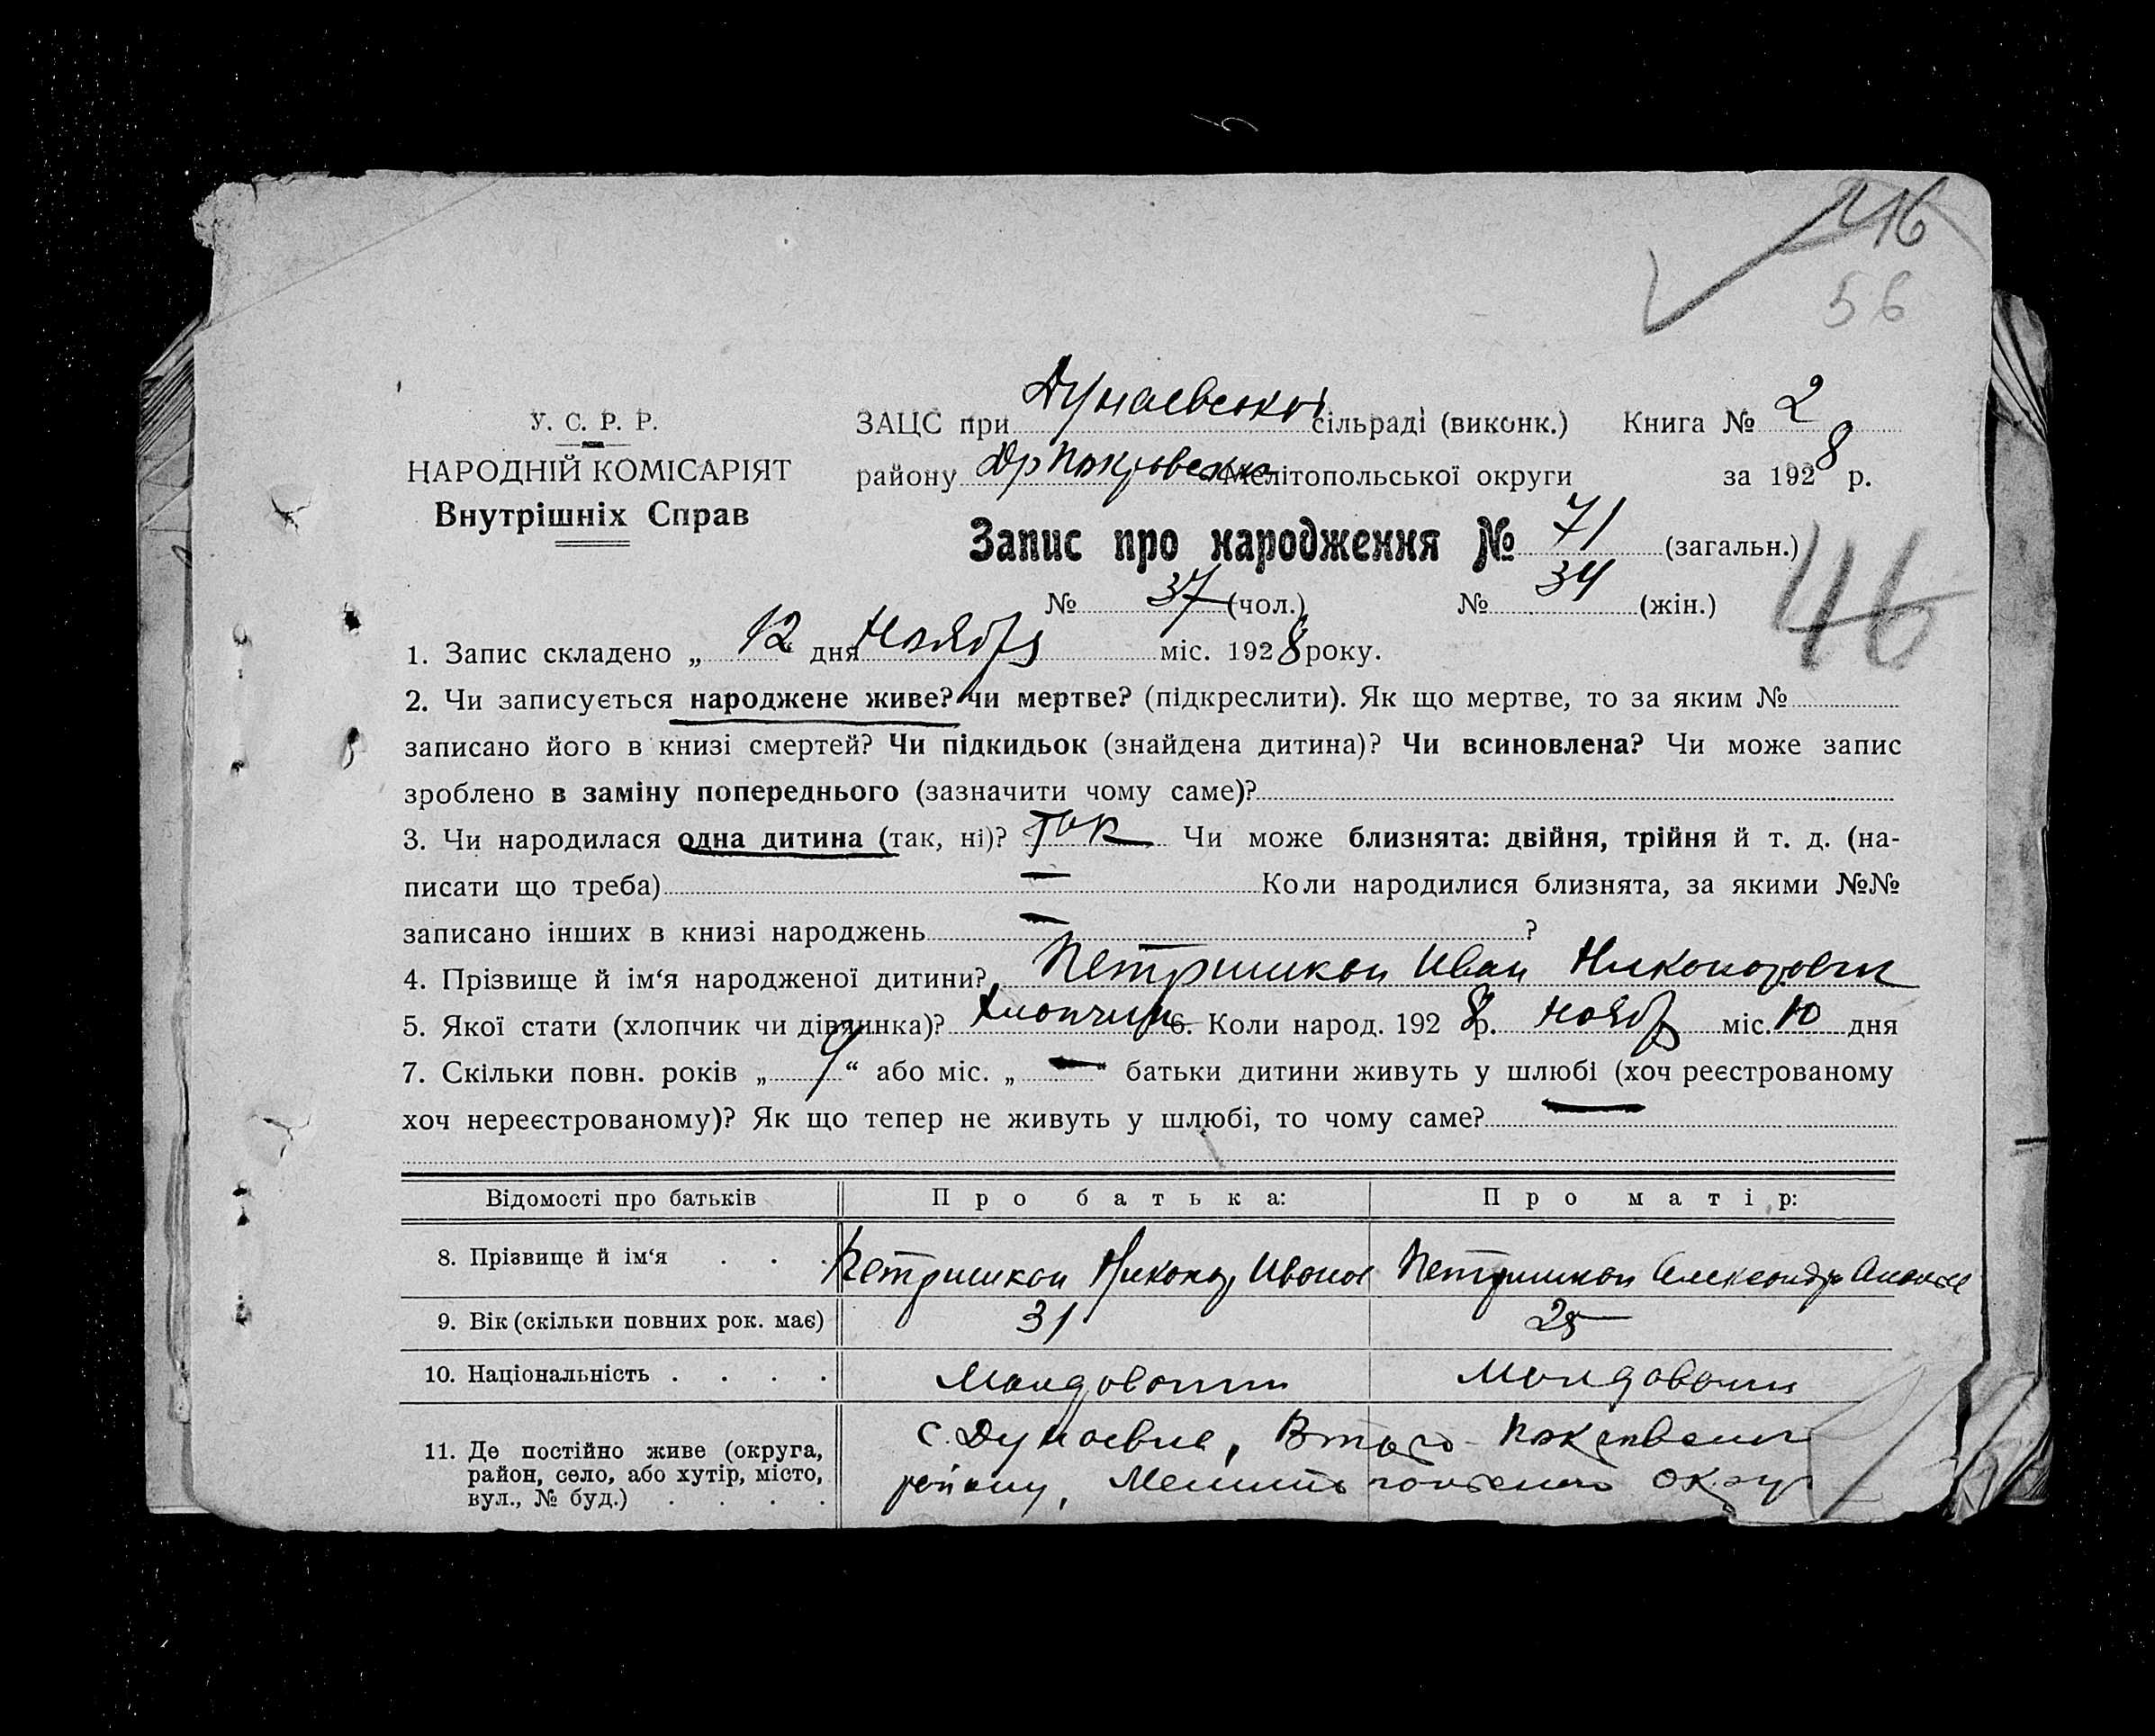 46
56
У. С. Р. Р.
НАРОДНІЙ КОМІСАРІЯТ
Внутрішніх Справ
ЗАЦС при Дунаевській сільраді (виконк.) Книга № 2
району Мелітопольської округи за 1928 р.
Запис про народження № 71 (загальн.)
№ 37 (чол.) № 34 (жін.)
46
1. Запис складено „ 12 дня Ноября міс. 1928 року.
2. Чи записується народжене живе? чи мертве? (підкреслити). Як що мертве, то за яким №
записано його в книзі смертей? Чи підкидьок (знайдена дитина)? Чи всиновлена? Чи може запис
зроблено в заміну попереднього (зазначити чому саме)?
3. Чи народилася одна дитина (так, ні)? так Чи може близнята: двійня, трійня й т. д. (на-
писати що треба) — Коли народилися близнята, за якими №№
записано інших в книзі народжень — ?
4. Прізвище й ім‘я народженої дитини? Петришкан Иван Никонорович
5. Якої стати (хлопчик чи дівчинка)? Хлопчик 6. Коли народ. 1928 р. Нояб міс. 10 дня
7. Скільки повн. років „ 9 “ або міс. „ — “ батьки дитини живуть у шлюбі (хоч реєстрованому
хоч нереєстрованому)? Як що тепер не живуть у шлюбі, то чому саме? —
Відомості про батьків Про батька: Про матір:
8. Прізвище й ім‘я . . . Петришкан Никонор Иванов Петришкан Александра
9. Вік (скільки повних рок. має) 31 25
10. Національність . . . . Молдован Молдован
11. Де постійно живе (округа, с. Дунаевка,
район, село, або хутір, місто, району, Мелитопольского округ
вул., № буд.) . . . .